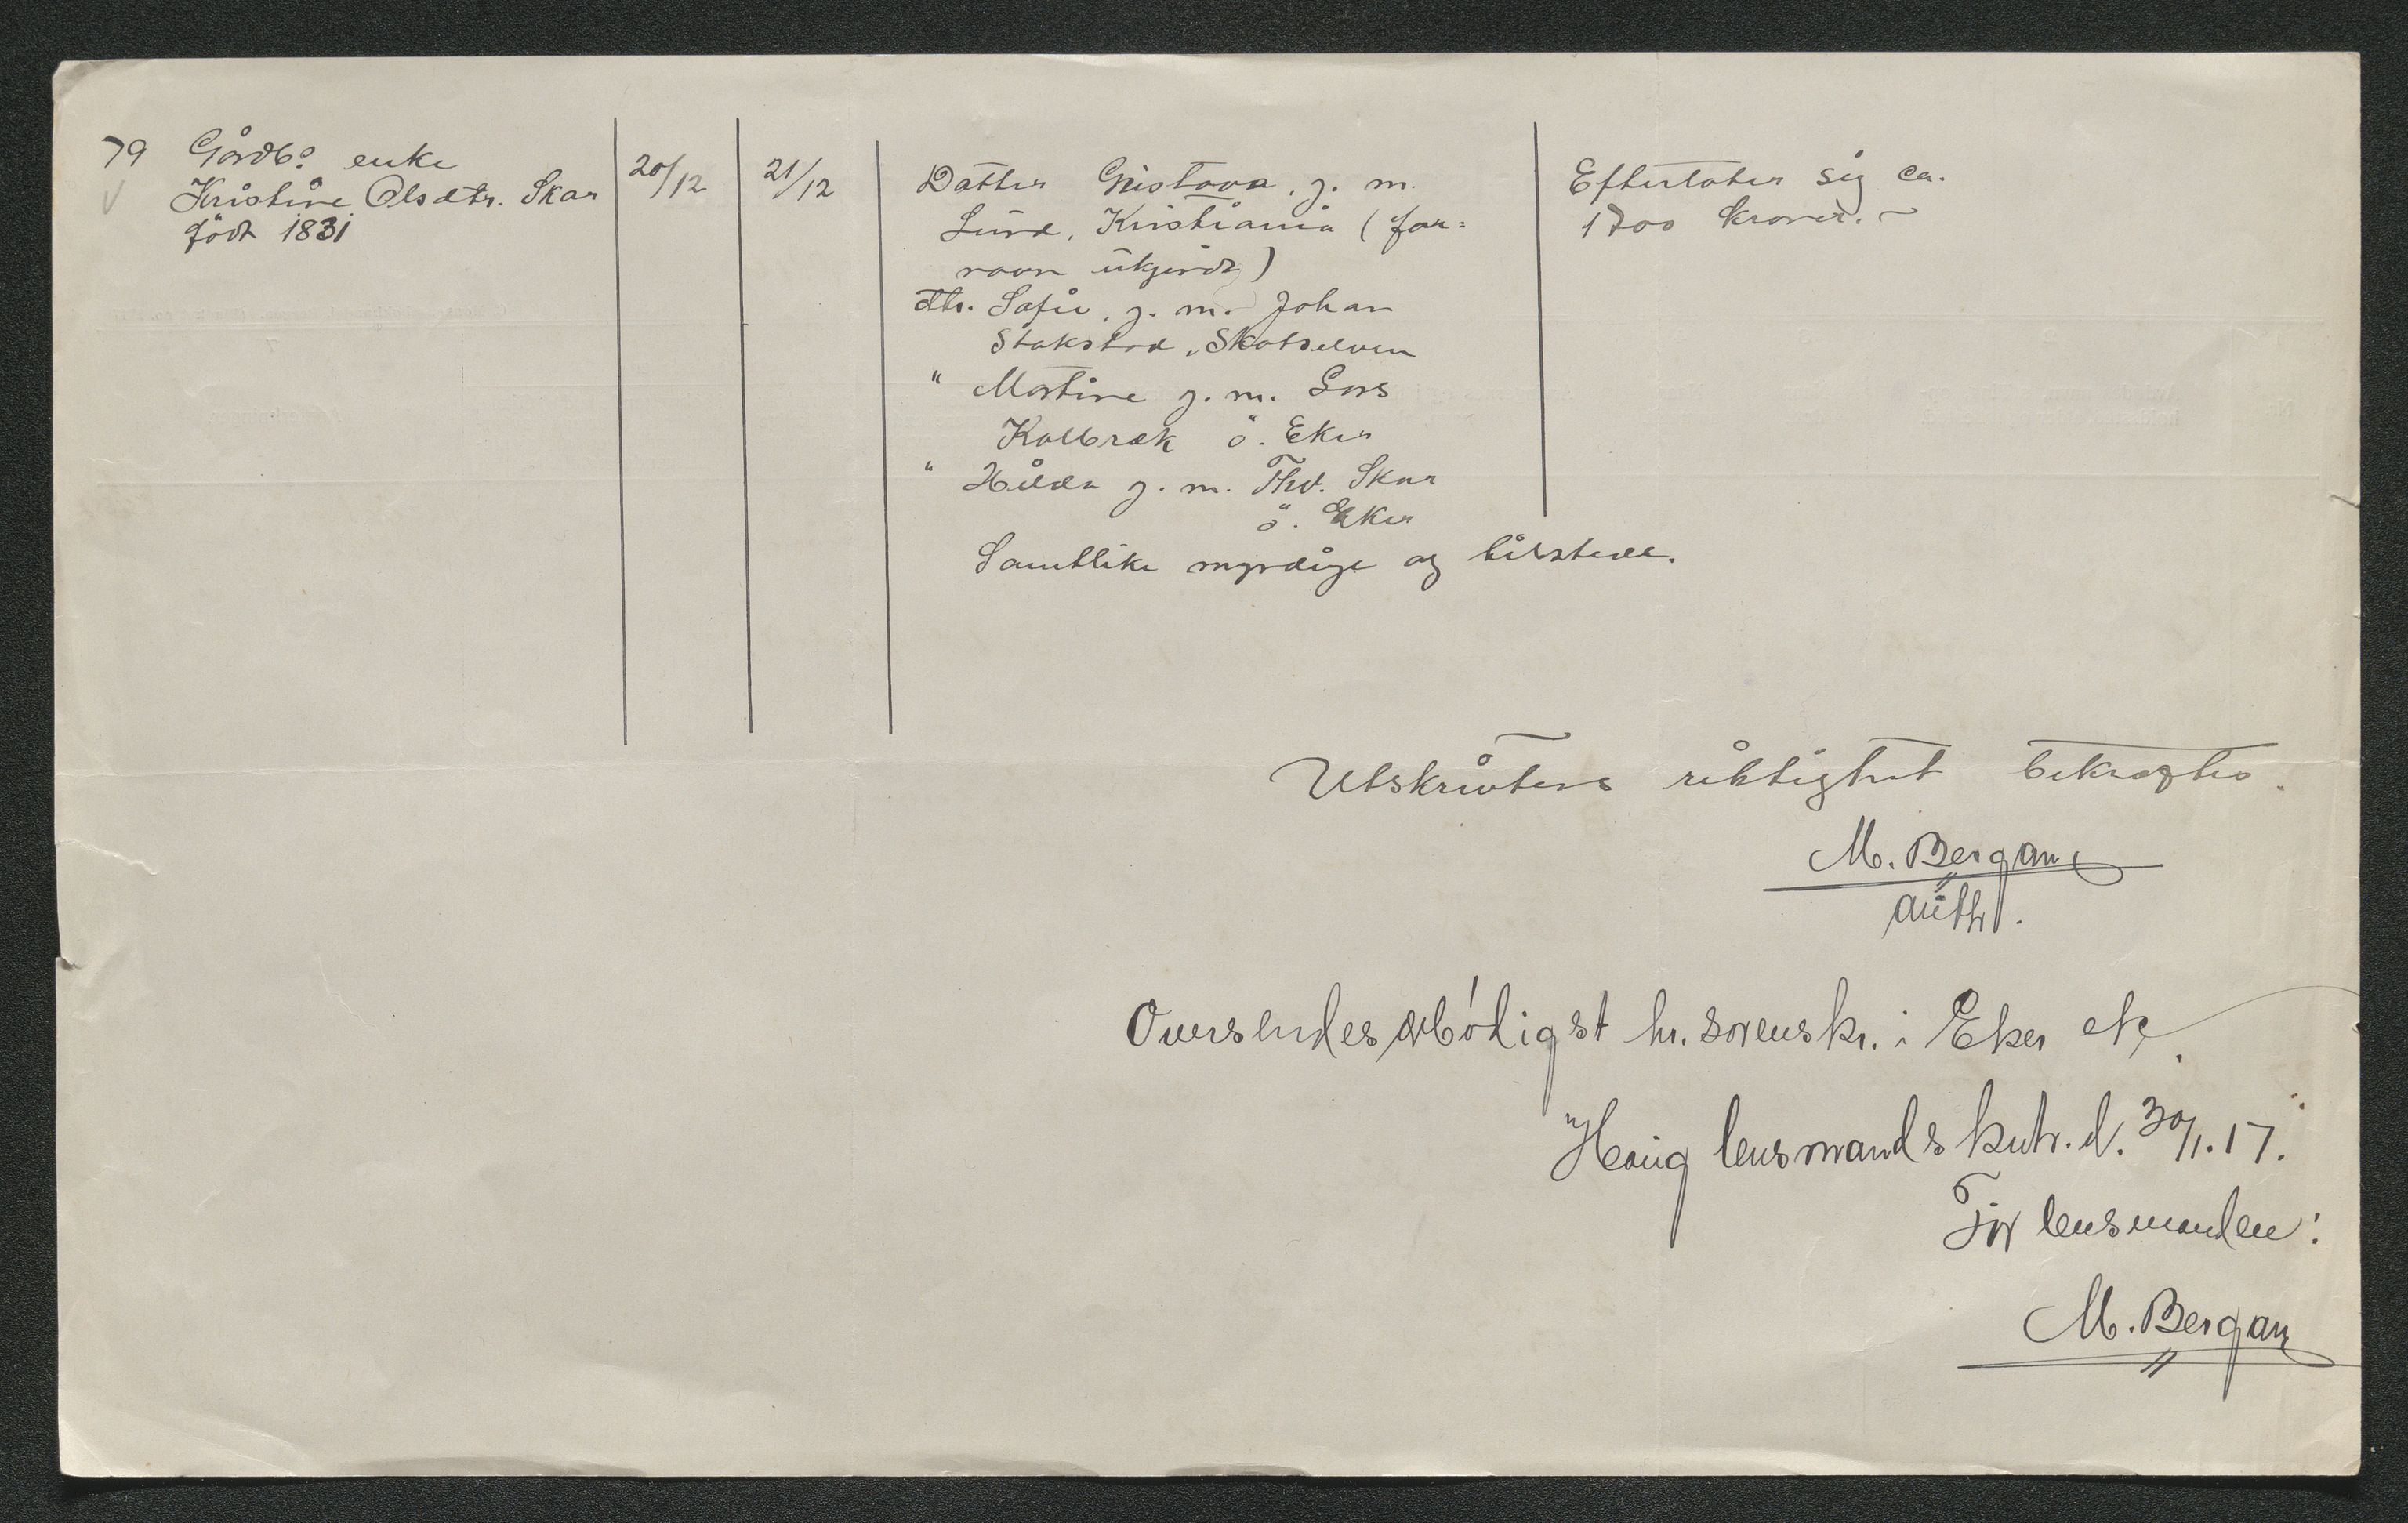 79 Gårdb. enke
Kristine Olsdtr. Skar
født 1831
20/12
21/12
Datter Gustava, g. m.
Lund, Kristiania (for=
navn ukjendt)
dtr. Sofie, g. m. Johan
Stakstad, Skotselven
" Martine g. m. Lars
Kolbræk ö. Eker
" Hilda g. m. Thv. Skar
ö. Eker
Samtlike myndige og tilstede.
Efterlater sig ca.
1700 kroner. ~
Utskriftens riktighet bekræftes.
M. Bergan
auth.
Oversendes ærbødigst hr. sorenskr. i Eker etc.
Haug lensmandskntr. d. 30/1. 17.
For lensmanden:
M. Bergan